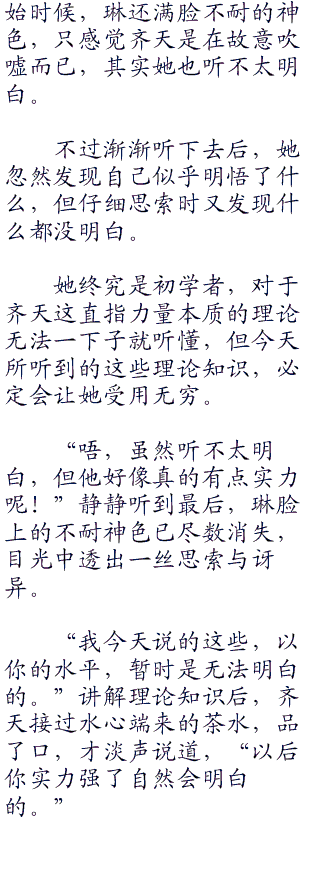 始时候，琳还满脸不耐的神
色，只感觉齐天是在故意吹
嘘而已，其实她也听不太明
白。
不过渐渐听下去后，她
忽然发现自己似乎明悟了什
么，但仔细思索时又发现什
么都没明白。
她终究是初学者，对于
齐天这直指力量本质的理论
无法一下子就听懂，但今天
所听到的这些理论知识，必
定会让她受用无穷。
“唔，虽然听不太明
白，但他好像真的有点实力
呢！”静静听到最后，琳脸
上的不耐神色已尽数消失，
目光中透出一丝思索与讶
异。
“我今天说的这些，以
你的水平，暂时是无法明白
的。”讲解理论知识后，齐
天接过水心端来的茶水，品
了口，才淡声说道，“以后
你实力强了自然会明白
的。”